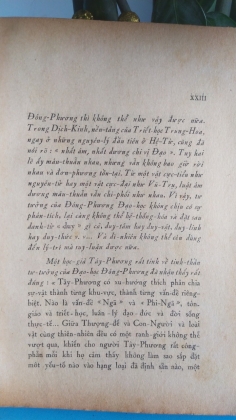 XXIII
Đông-Phương thì không thể như vậy được nữa.
Trong Dịch-Kinh, nền-tảng của Triết học Trung-Hoa,
ngay ở những nguyên-lý đầu tiên ở Hệ-Từ, cũng đã
nói rõ: « nhất âm, nhất dương chi vị Đạo ». Tuy hai
lẽ ấy mâu-thuẫn nhau, nhưng vẫn không bao giờ rời
nhau và đơn-phương tồn-tại. Từ một vật cực-tiểu như
nguyên-tử hay một vật cực-đại như Vũ-Trụ, luật âm
dương mâu-thuẫn vẫn chi-phối như nhau. Vì vậy, tư
tưởng của Đông-Phương Đạo-học không chịu có sự
phân-tích, lại càng không thể hệ-thống-hóa và đặt cho
danh-từ « duy » gì cả, duy-tâm hay duy-vật, duy linh
hay duy-thức v. v... Và dĩ nhiên không thể nào dùng
đến lý-trí mà suy-luận được nữa.
Một học-giả Tây-Phương rất tinh tế về tính-thần
tư-tưởng của Đạo-học Đông-Phương đã nhận thấy rất
đúng : « Tây-Phương có xu-hướng thích phân chia
sự-vật thành từng khu-vực, thành từng vấn-đề riêng-
biệt. Nào là vấn-đề « Ngã » và « Phi-Ngã », tôn-
giáo và triết-học, luân-lý đạo-đức và đời sống
thực-tế... Giữa Thượng-đế và Con Người và loài
vật cùng thiên-nhiên đều có một ranh-giới không thể
vượt qua, khiến cho người Tây-Phương rất công-
phẫn mỗi khi họ cảm thấy không làm sao sắp đặt
một yếu-tố nào vào hạng loại đã định sẵn nào, một